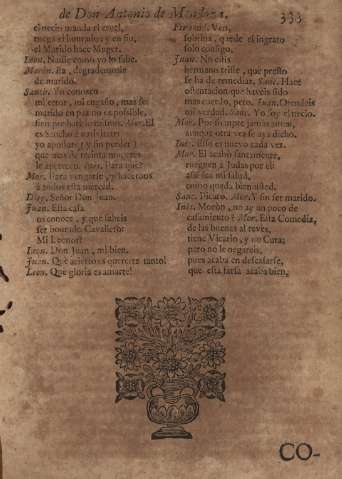 de Don Antonio de Mendoza. 333
el necio manda el cruel,
ruega el honrado; y en fin,
el Marido hace Muger.
Leon. Nadie como yo lo sabe.
Moron. ita, degradenme
de marido.
Sanch. Yo conozco
mi error, mi engaño, mas ser
marido en paz no es possible,
Mor. El
es Sancho
yo apostaré, y sin perder
que mas de treinta mugeres
le apetecen. Para què?
Mor. Para vengarse, y hacernos
à todos esta merced.
Dieg. Señor Don Juan.
Juan. Esta casa
os conoce, y que sabeis
ser honrado Cavallero?
Mi Leonor?
Leon. Don Juan, mi bien.
Juan. Què acierto es quererte tanto!
Leon. Que gloria es amarte!
Fernand. Ven,
sobrina, quede el ingrato
solo consigo.
Juan. No estis
hermano triste, que presto
se ha de remediar. Sanc. Hace
ostentacion que haveis sido
mas cuerdo, pero. Juan. Os
mi verdad. San. Yo soy el necio.
Mor. Por siempre jamàs amen,
aunque otra vez se aya dicho.
Ines. Esso es nuevo cada vez.
Mor. El acabo santamente,
rueguen a Judas por el:
assi sea mi salud,
como queda bien usted.
Sanc. Picaro. Mor. Y sin ser marido.
Inès. Moròn, no ay un poco de
casamiento? Mor. Esta Comedia,
de las buenas al revès,
tiene Vicario, y no Cura;
pero no le negareis,
pues acaba en descasarse,
que està harta acaba bien.
CO-